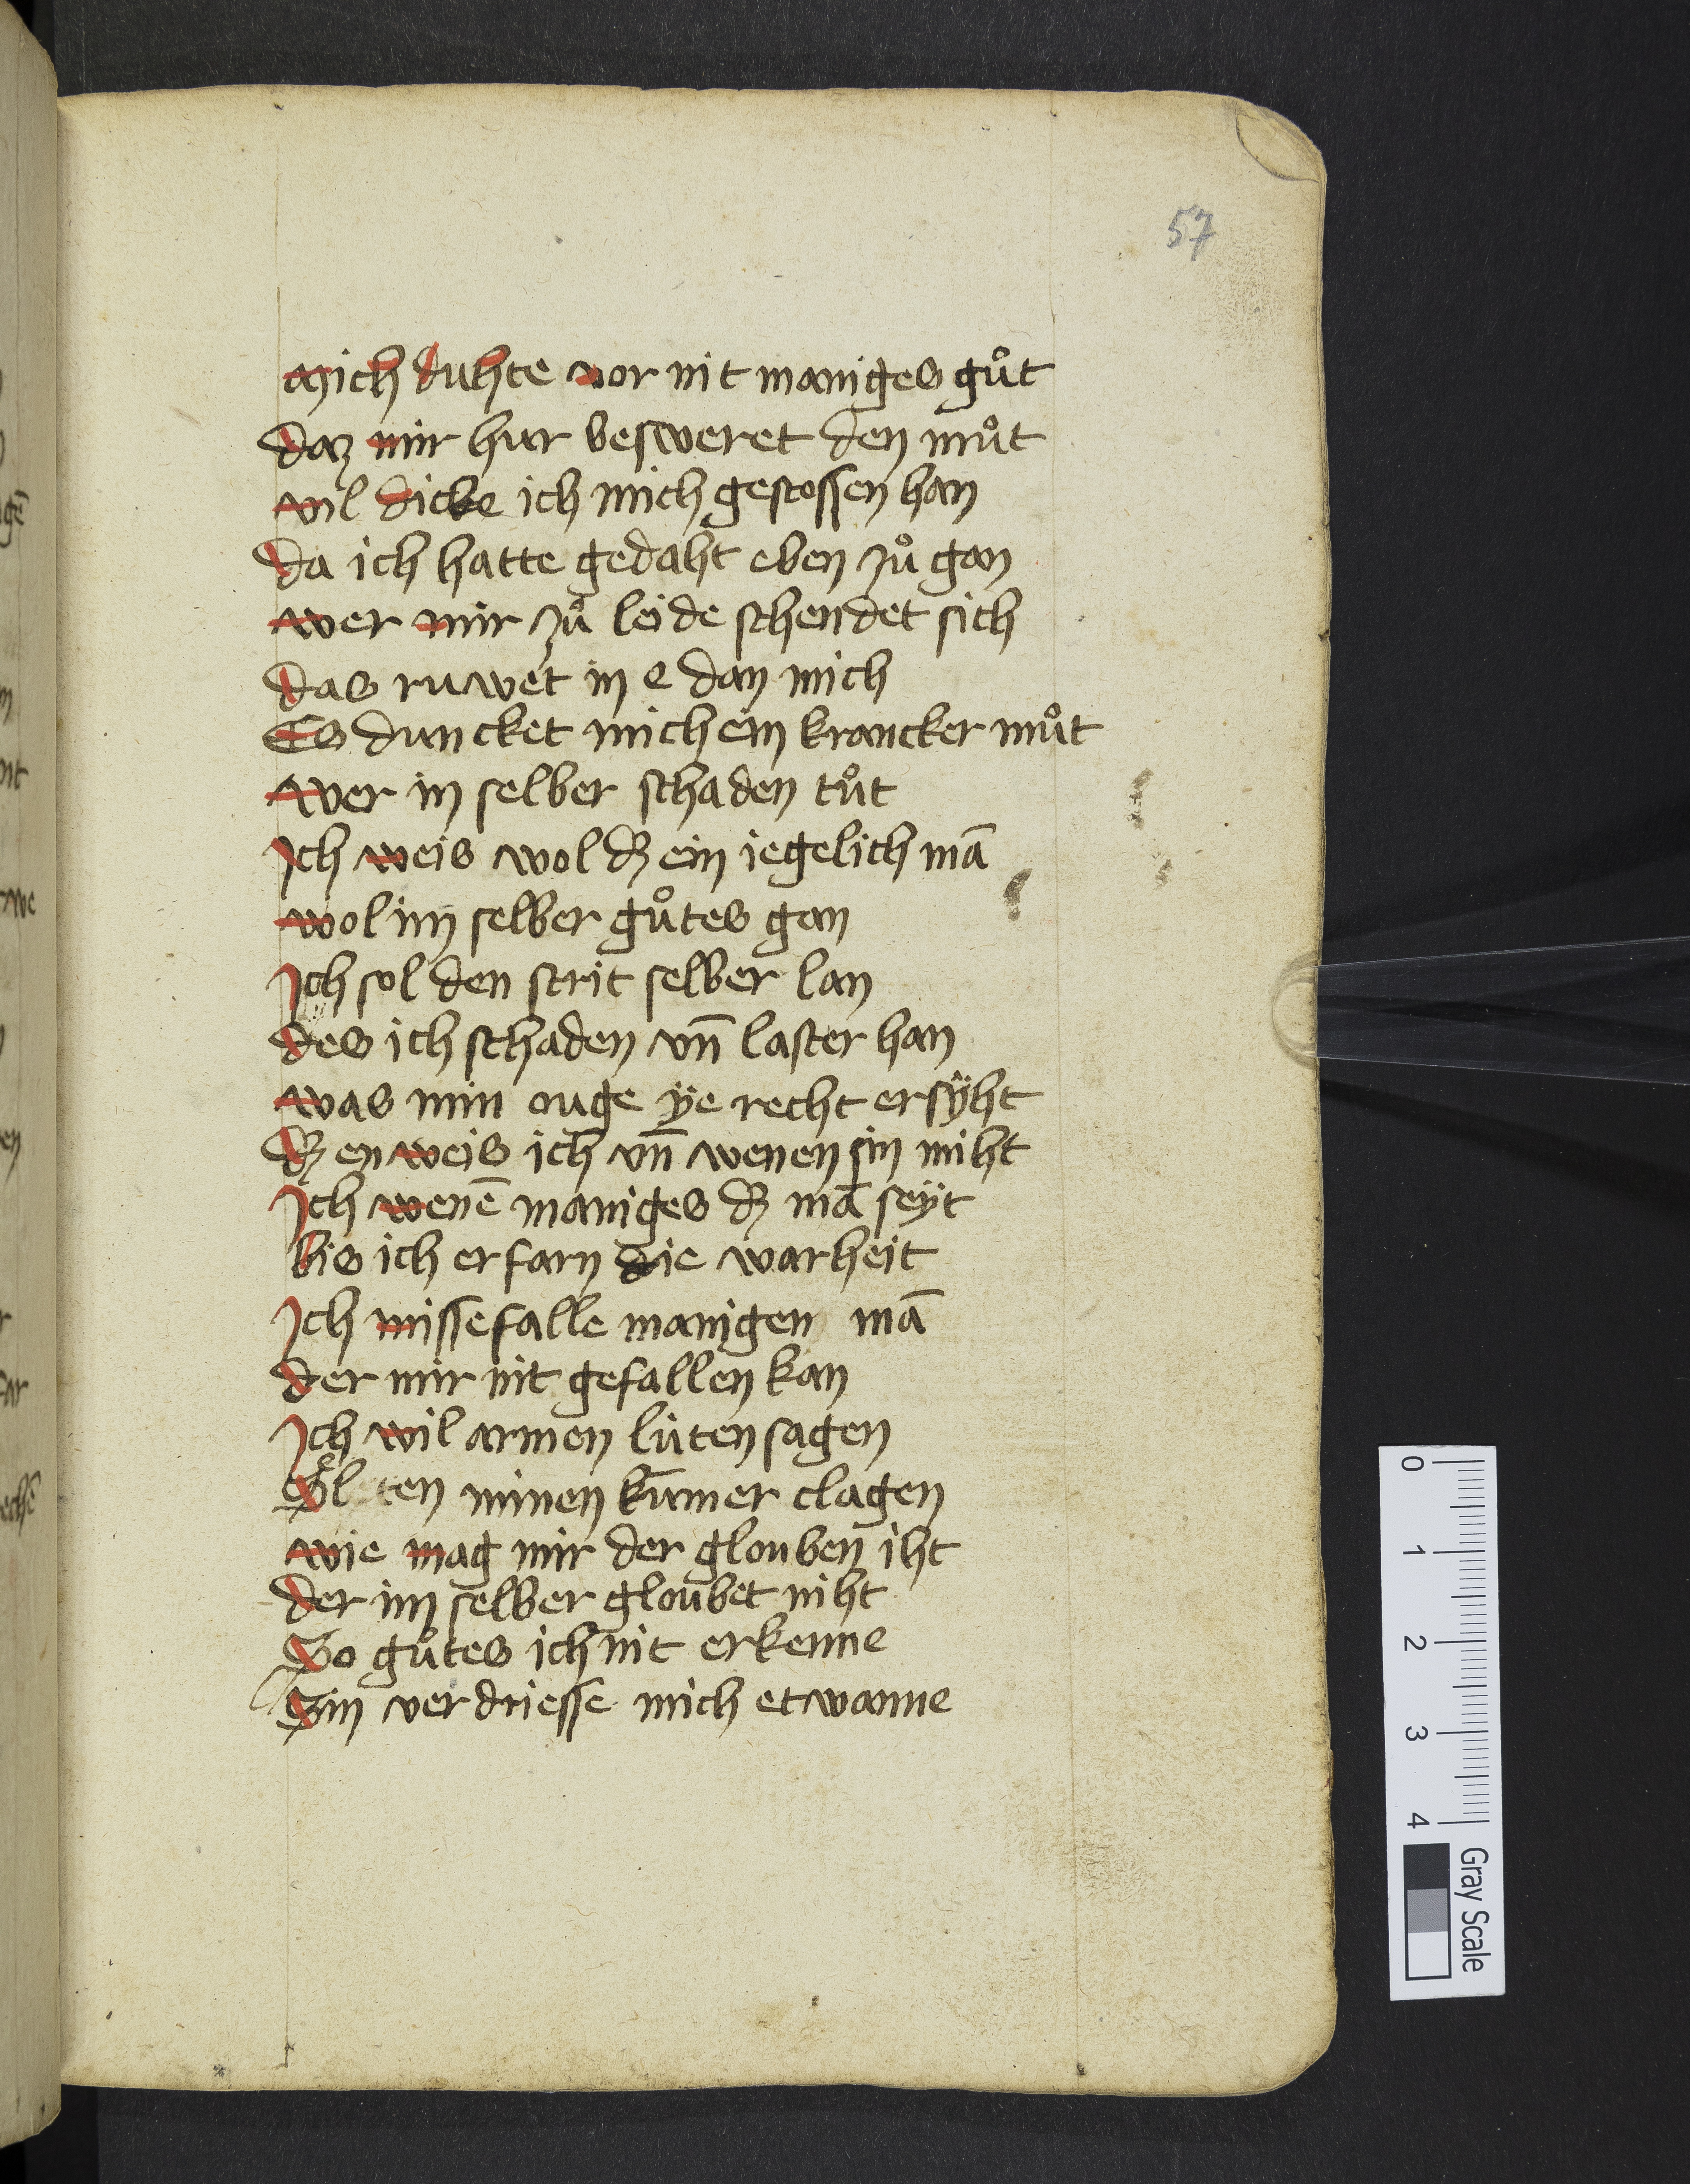 57
Mich duhte vor nit maniges gůt
daz mir hur besweret den můt
vil dicke ich mich gestossen han
da ich hatte gedaht eben zů gan
wer mir zů leide schendet sich
das ruwet in e dan mich
Es duncket mich ein krancker můt
wer in selber schaden tůt
Ich weis wol dz ein iegelich mā
wol im selber gůtes gan
Ich sol den strit selber lan
des ich schaden vn̄ laster han
was min ouge ÿe recht ersÿht
dz en weis ich vn̄ wenen sin niht
Ich wenē maniges dz mā seÿt
bis ich erfarn die warheit
Ich missefalle manigen mā
der mir nit gefallen kan
Ich wil armen lůten sagen
ten minen kumer clagen
wie mag mir der glouben iht
der im selber gloubet niht
So gůtes ich nit erkenne
Sin verdriesse mich etwanne
0 1 2 3 4
Gray Scale